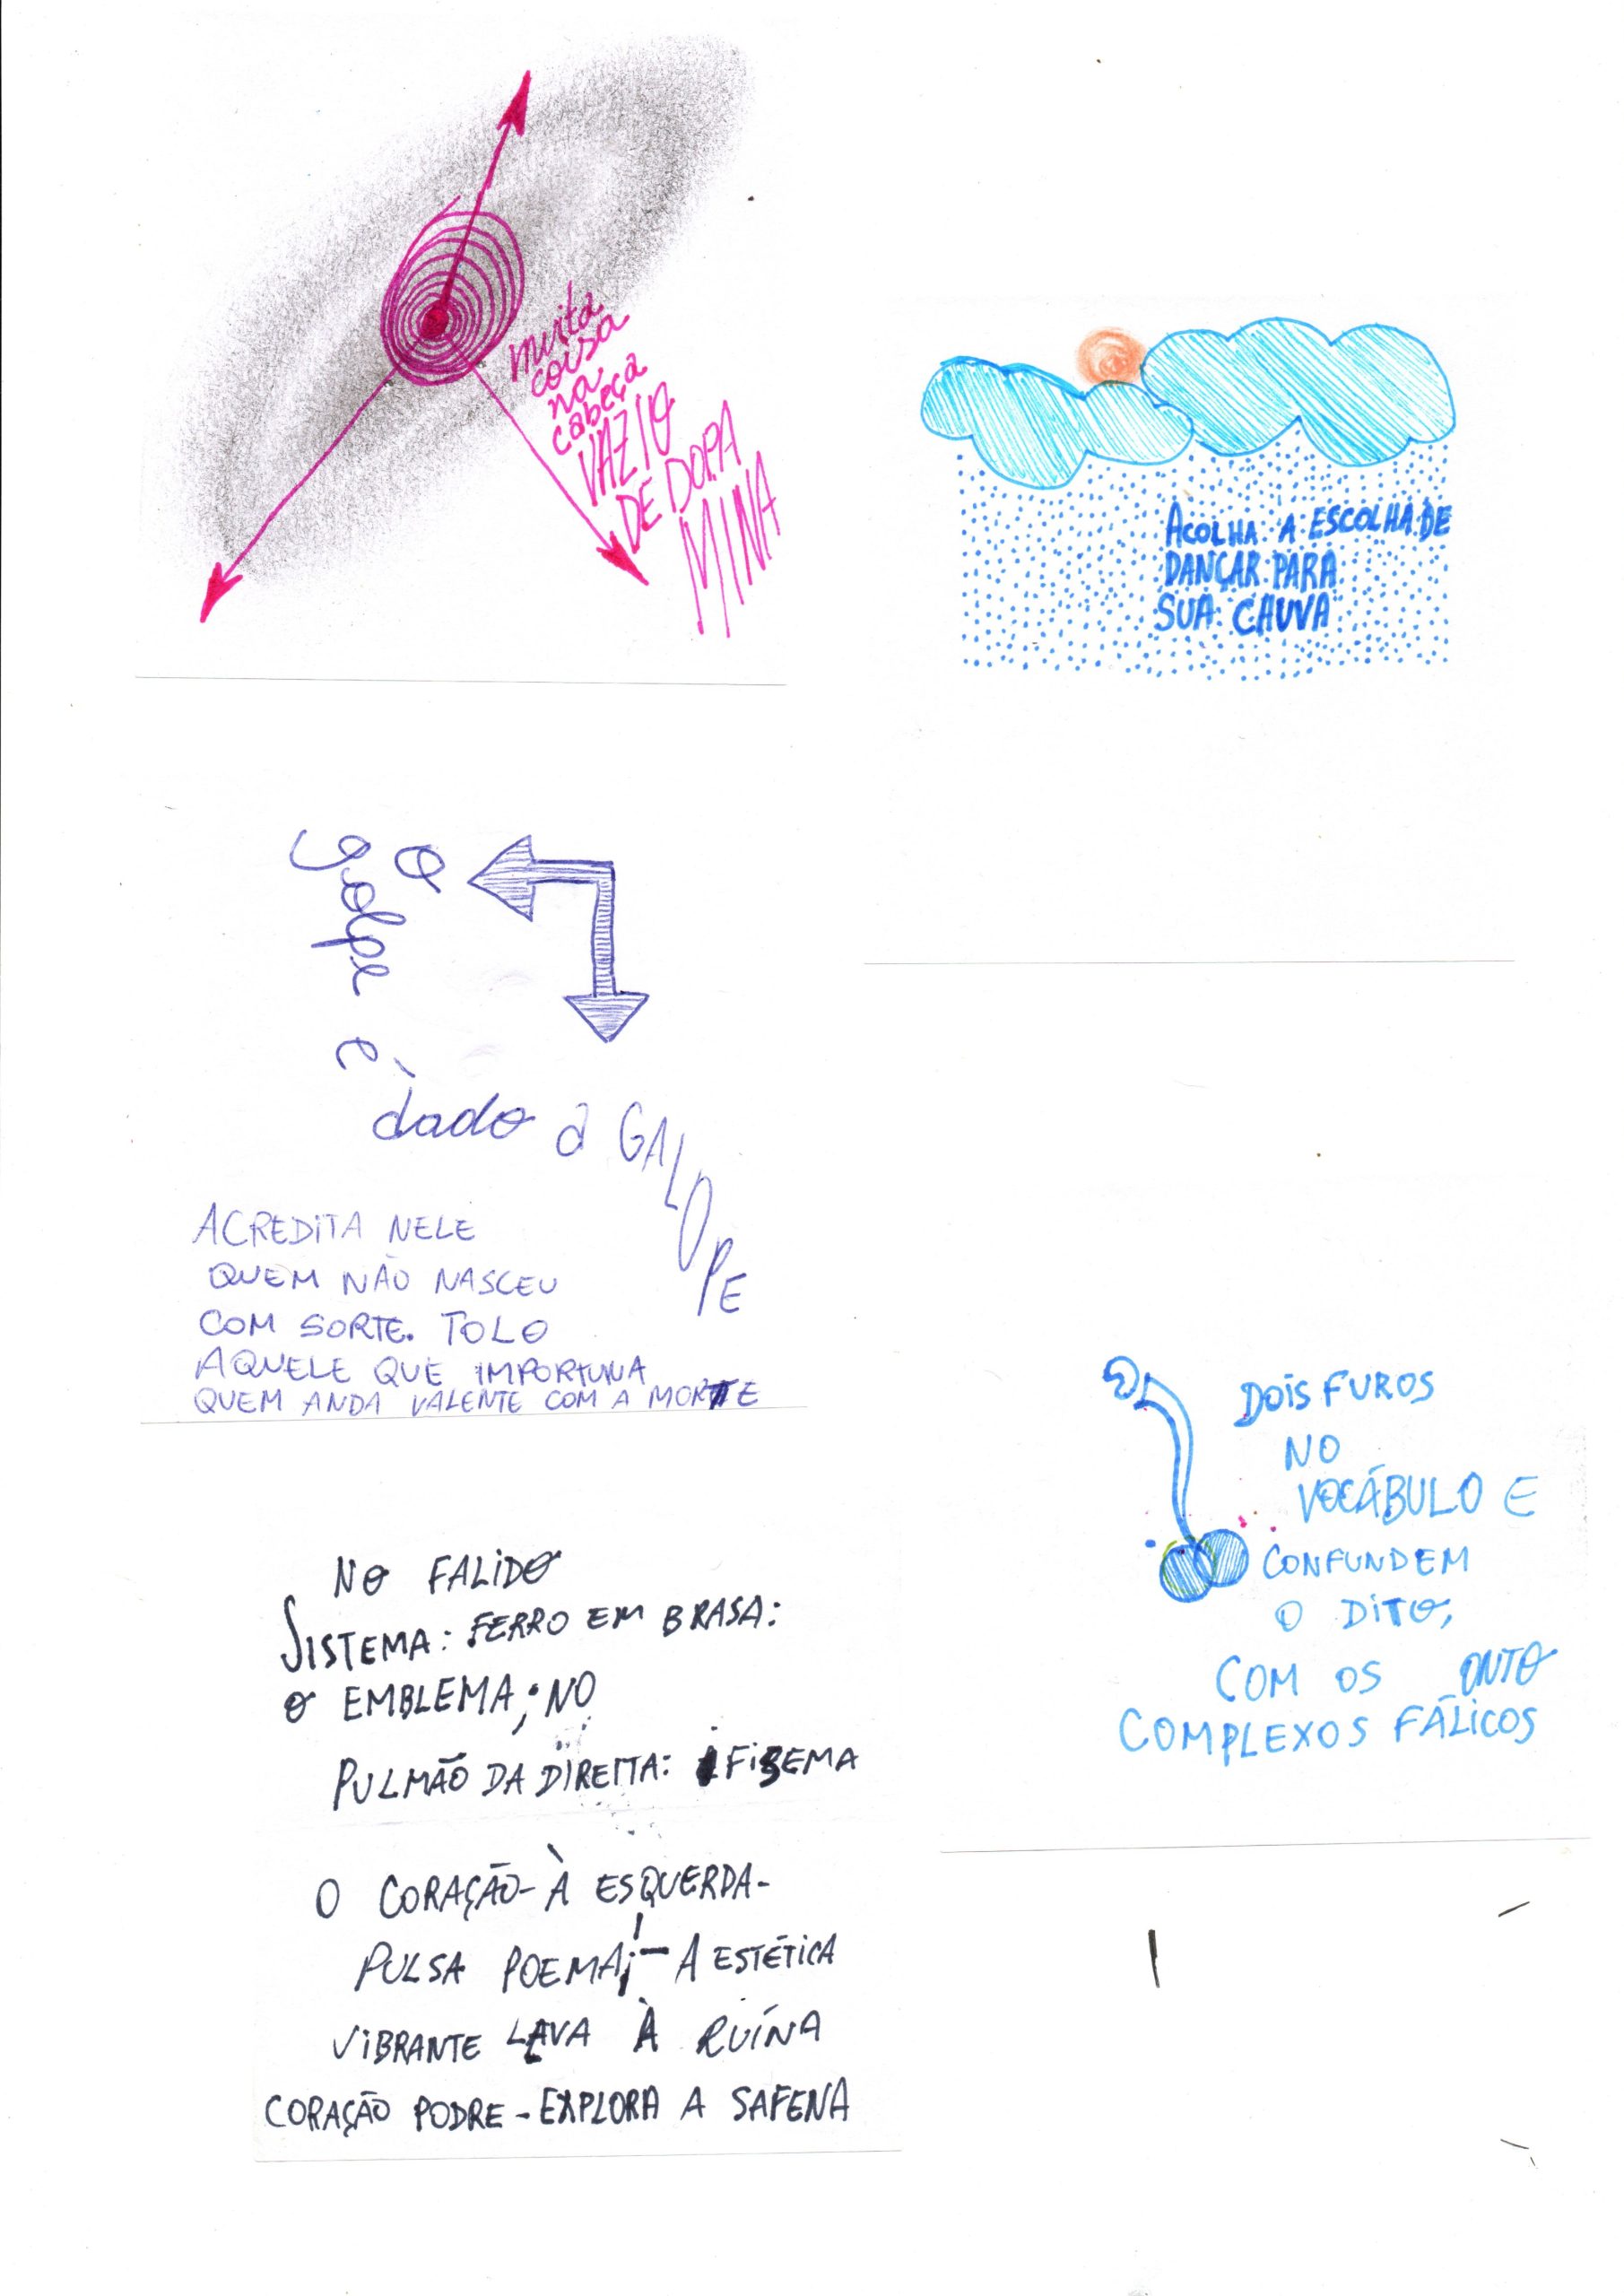 muita
coisa
na
cabeça
VAZIO
DE DOPA
MINA
ACOLHA A ESCOLHA DE
DANÇAR PARA
SUA CHUVA
O
golpe
é
dado a GALOPE
ACREDITA NELE
QUEM NÃO NASCEU
COM SORTE. TOLO
AQUELE QUE IMPORTUNA
QUEM ANDA VALENTE COM A MORTE
DOIS FUROS
NO
VOCÁBULO E
CONFUNDEM
O DITO,
COM OS ONTO
COMPLEXOS FÁLICOS
NO FALIDO
SISTEMA: FERRO EM BRASA:
O EMBLEMA; NO
PULMÃO DA DIREITA: FISEMA
O CORAÇÃO - À ESQUERDA -
PULSA POEMA; - A ESTÉTICA
VIBRANTE LAVA À RUÍNA
CORAÇÃO PODRE - EXPLORA A SAFENA